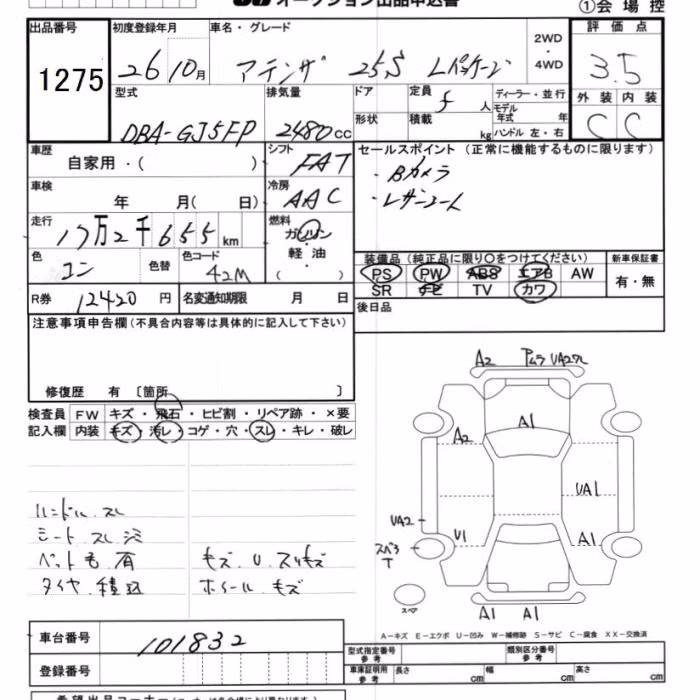 オークション出品申込書
①会場控
出品番号 1275
初度登録年月 26 10月
車名・グレード アテンザ 25S Lパッケージ
2WD・4WD
評価点 3.5
型式 DBA-GJ5FP
排気量 2480cc
ドア
形状
定員 5人
積載 kg
ディーラー・並行
モデル年式 年
ハンドル 左・右
外装 C
内装 C
車歴 自家用・( )
シフト FAT
セールスポイント(正常に機能するものに限ります)
・Bカメラ
・レザーシート
車検 年 月( 日)
冷房 AAC
走行 17万2千655km
燃料 ガソリン・軽油 ( )
色 コン
色替
色コード 42M
装備品(純正品に限り○をつけてください)
新車保証書 有・無
PS PW ABS エアB AW
SR ナビ TV カワ
R券 12420円
名変通知期限 月 日
後日品
注意事項申告欄(不具合内容等は具体的に記入して下さい)
修復歴 有〔箇所 〕
検査員記入欄
FW キズ・飛石・ヒビ割・リペア跡・×要
内装 キズ・汚レ・コゲ・穴・スレ・キレ・破レ
ハンドル スレ
シート スレ
ペット毛 有
タイヤ 積込
キズ U スリキズ
ホイール キズ
A2
UA2
A1
A2
UA1
UA2
U1
A1
スペアT
スペア
A1 A1
A-キズ E-エクボ U-凹み W-補修跡 S-サビ C-腐食 XX-交換済
車台番号 101832
登録番号
型式指定番号 参考
類別区分番号 参考
車庫証明用 参考 長さ cm 幅 cm 高さ cm